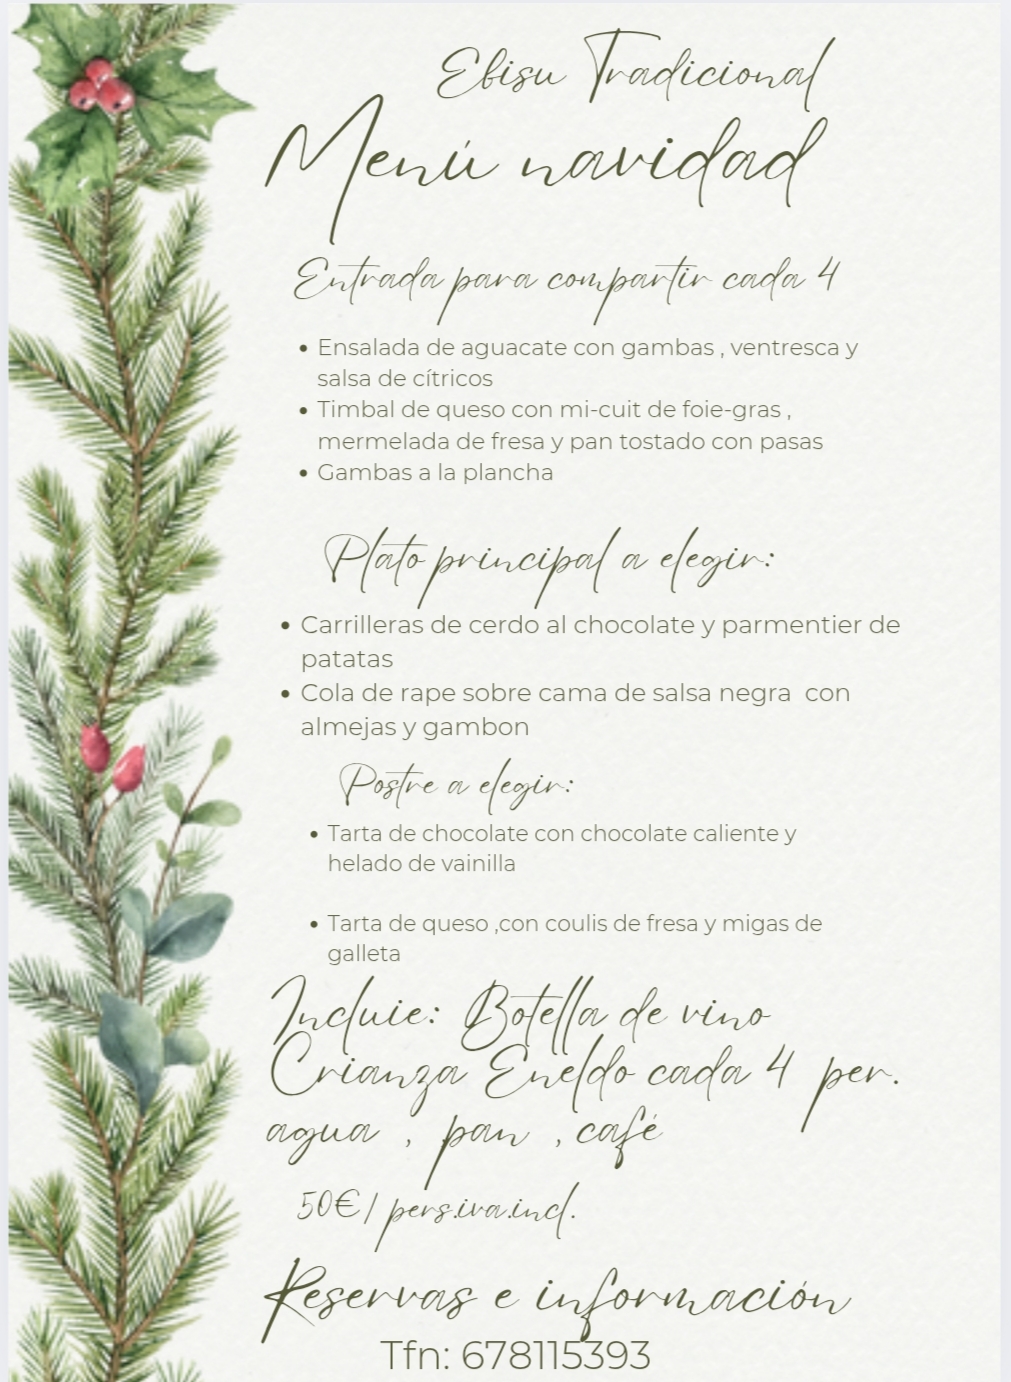 Ebisu Tradicional
Menú navidad
Entrada para compartir cada 4
• Ensalada de aguacate con gambas , ventresca y
salsa de cítricos
• Timbal de queso con mi-cuit de foie-gras ,
mermelada de fresa y pan tostado con pasas
• Gambas a la plancha
Plato principal a elegir:
• Carrilleras de cerdo al chocolate y parmentier de
patatas
• Cola de rape sobre cama de salsa negra con
almejas y gambon
Postre a elegir:
• Tarta de chocolate con chocolate caliente y
helado de vainilla
• Tarta de queso ,con coulis de fresa y migas de
galleta
Incluie: Botella de vino
Crianza Eneldo cada 4 per.
agua , pan , café
50€/ pers.iva.incl.
Reservas e información
Tfn: 678115393